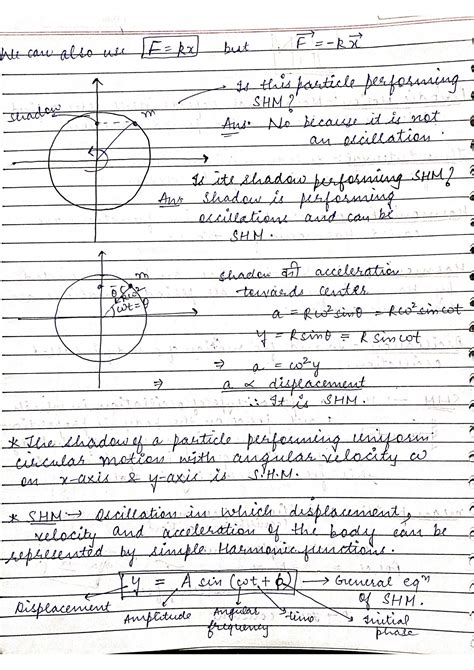 We can also use F = kx but F⃗ = -k x⃗
Is this particle performing
SHM?
Shadow
m
Ans. No because it is not
an oscillation.
Is its shadow performing SHM?
Ans Shadow is performing
oscillations and can be
SHM.
m
θ
ωt=θ
Shadow की acceleration
towards center
a = Rω²sinθ = Rω²sinωt
y = Rsinθ = R sinωt
⇒ a = ω²y
⇒ a ∝ displacement
∴ It is SHM.
* The shadow of a particle performing uniform
circular motion with angular velocity ω
on x-axis & y-axis is S.H.M.
* SHM → Oscillation in which displacement,
velocity and acceleration of the body can be
represented by simple Harmonic functions.
y = A sin (ωt + φ) → General eqⁿ
of SHM.
Displacement
Amplitude
Angular
frequency
time
Initial
phase